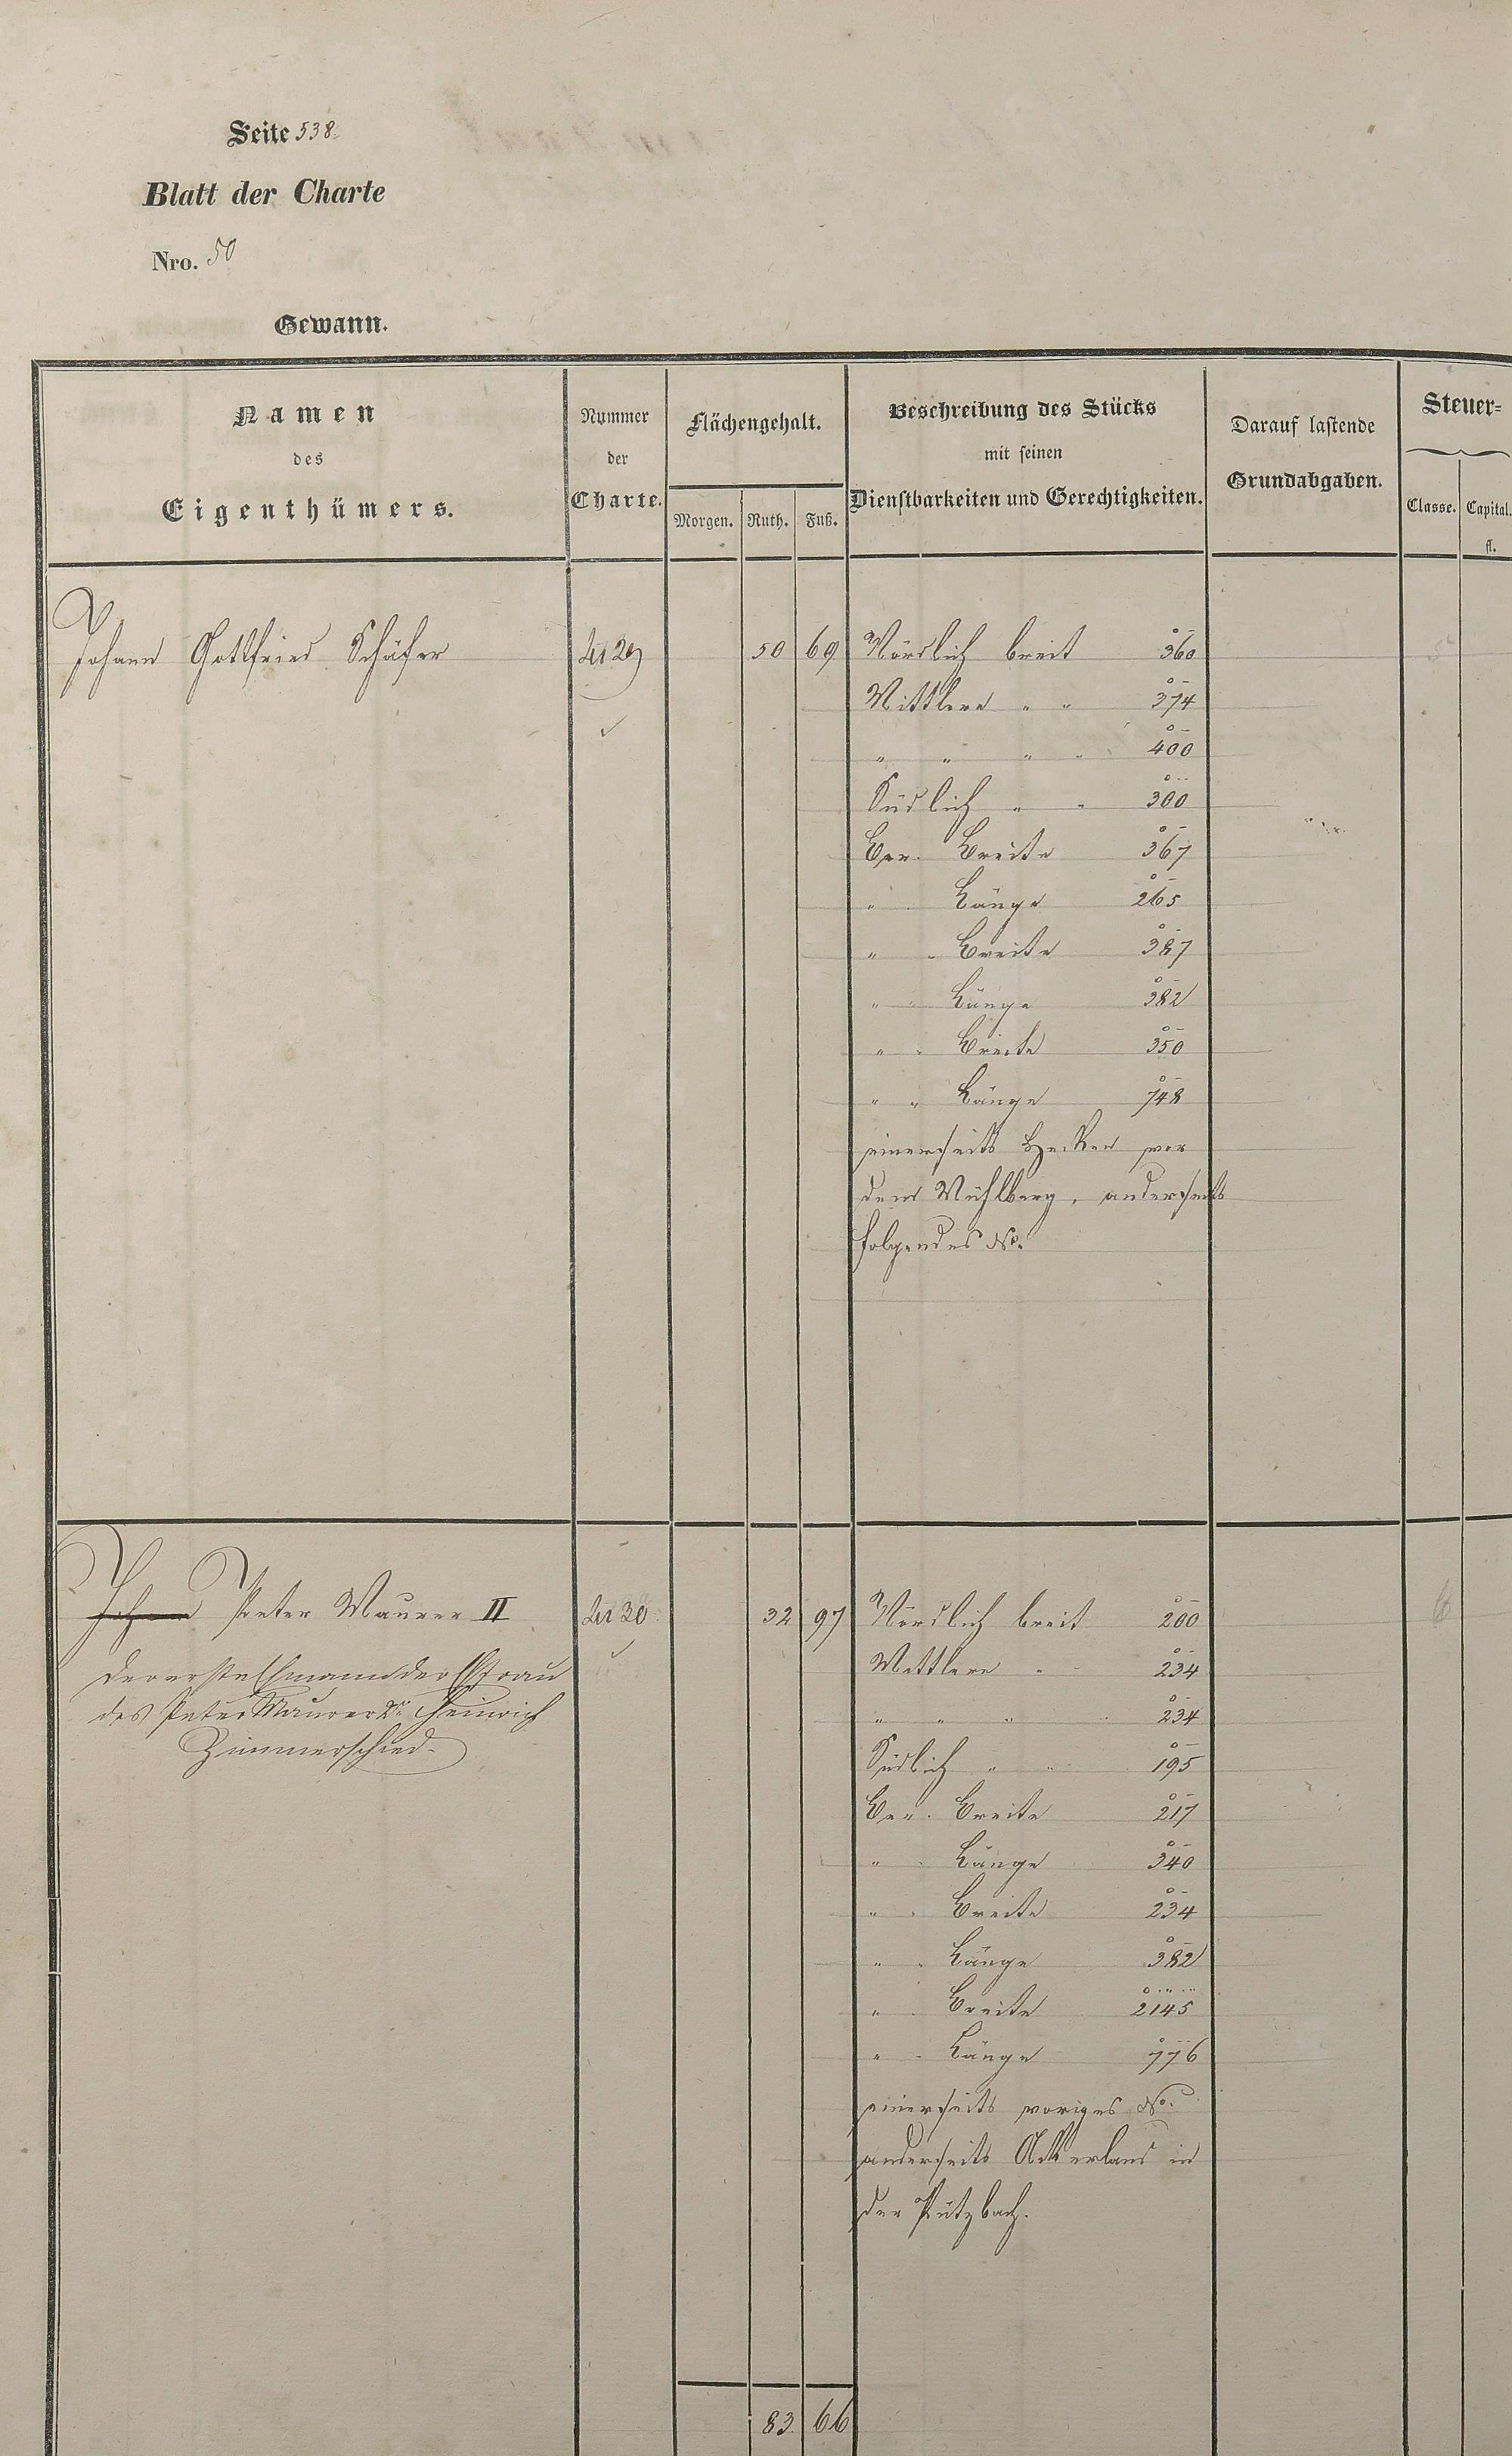 Seite 538.
Blatt der Charte
Nro. 50
Gewann.
Namen des Eigenthümers.
Nummer der Charte.
Flächengehalt.
Morgen. Ruth. Fuß.
Beschreibung des Stücks mit seinen Dienstbarkeiten und Gerechtigkeiten.
Darauf lastende Grundabgaben.
Steuer=
Classe. Capital.
fl.
Johann Gottfried Schäfer 50 69 Nördlich breit 360
Mittlere " " 374
" " " " 400
Südlich " " 300
Ber. Breite 367
" Länge 265
" " Breite 387
" " Länge 382
" " Breite 350
" " Länge 748
einerseits Hecken vor
dem Mühlberg, anderseits
folgendes No.
Johann Peter Maurer II 32 97 Nördlich breit 200
Mittlere " 234
" " " 234
Südlich " " 195
Ber. Breite 217
" Länge 340
" " Breite 234
" " Länge 382
" " Breite 2145
" " Länge 776
einerseits voriges No.
anderseits Ackerland in
der Pützbach.
der erste Ehmann der Ehfrau
des Peter Maurer 2r Heinrich
Zimmerschied.
83 66